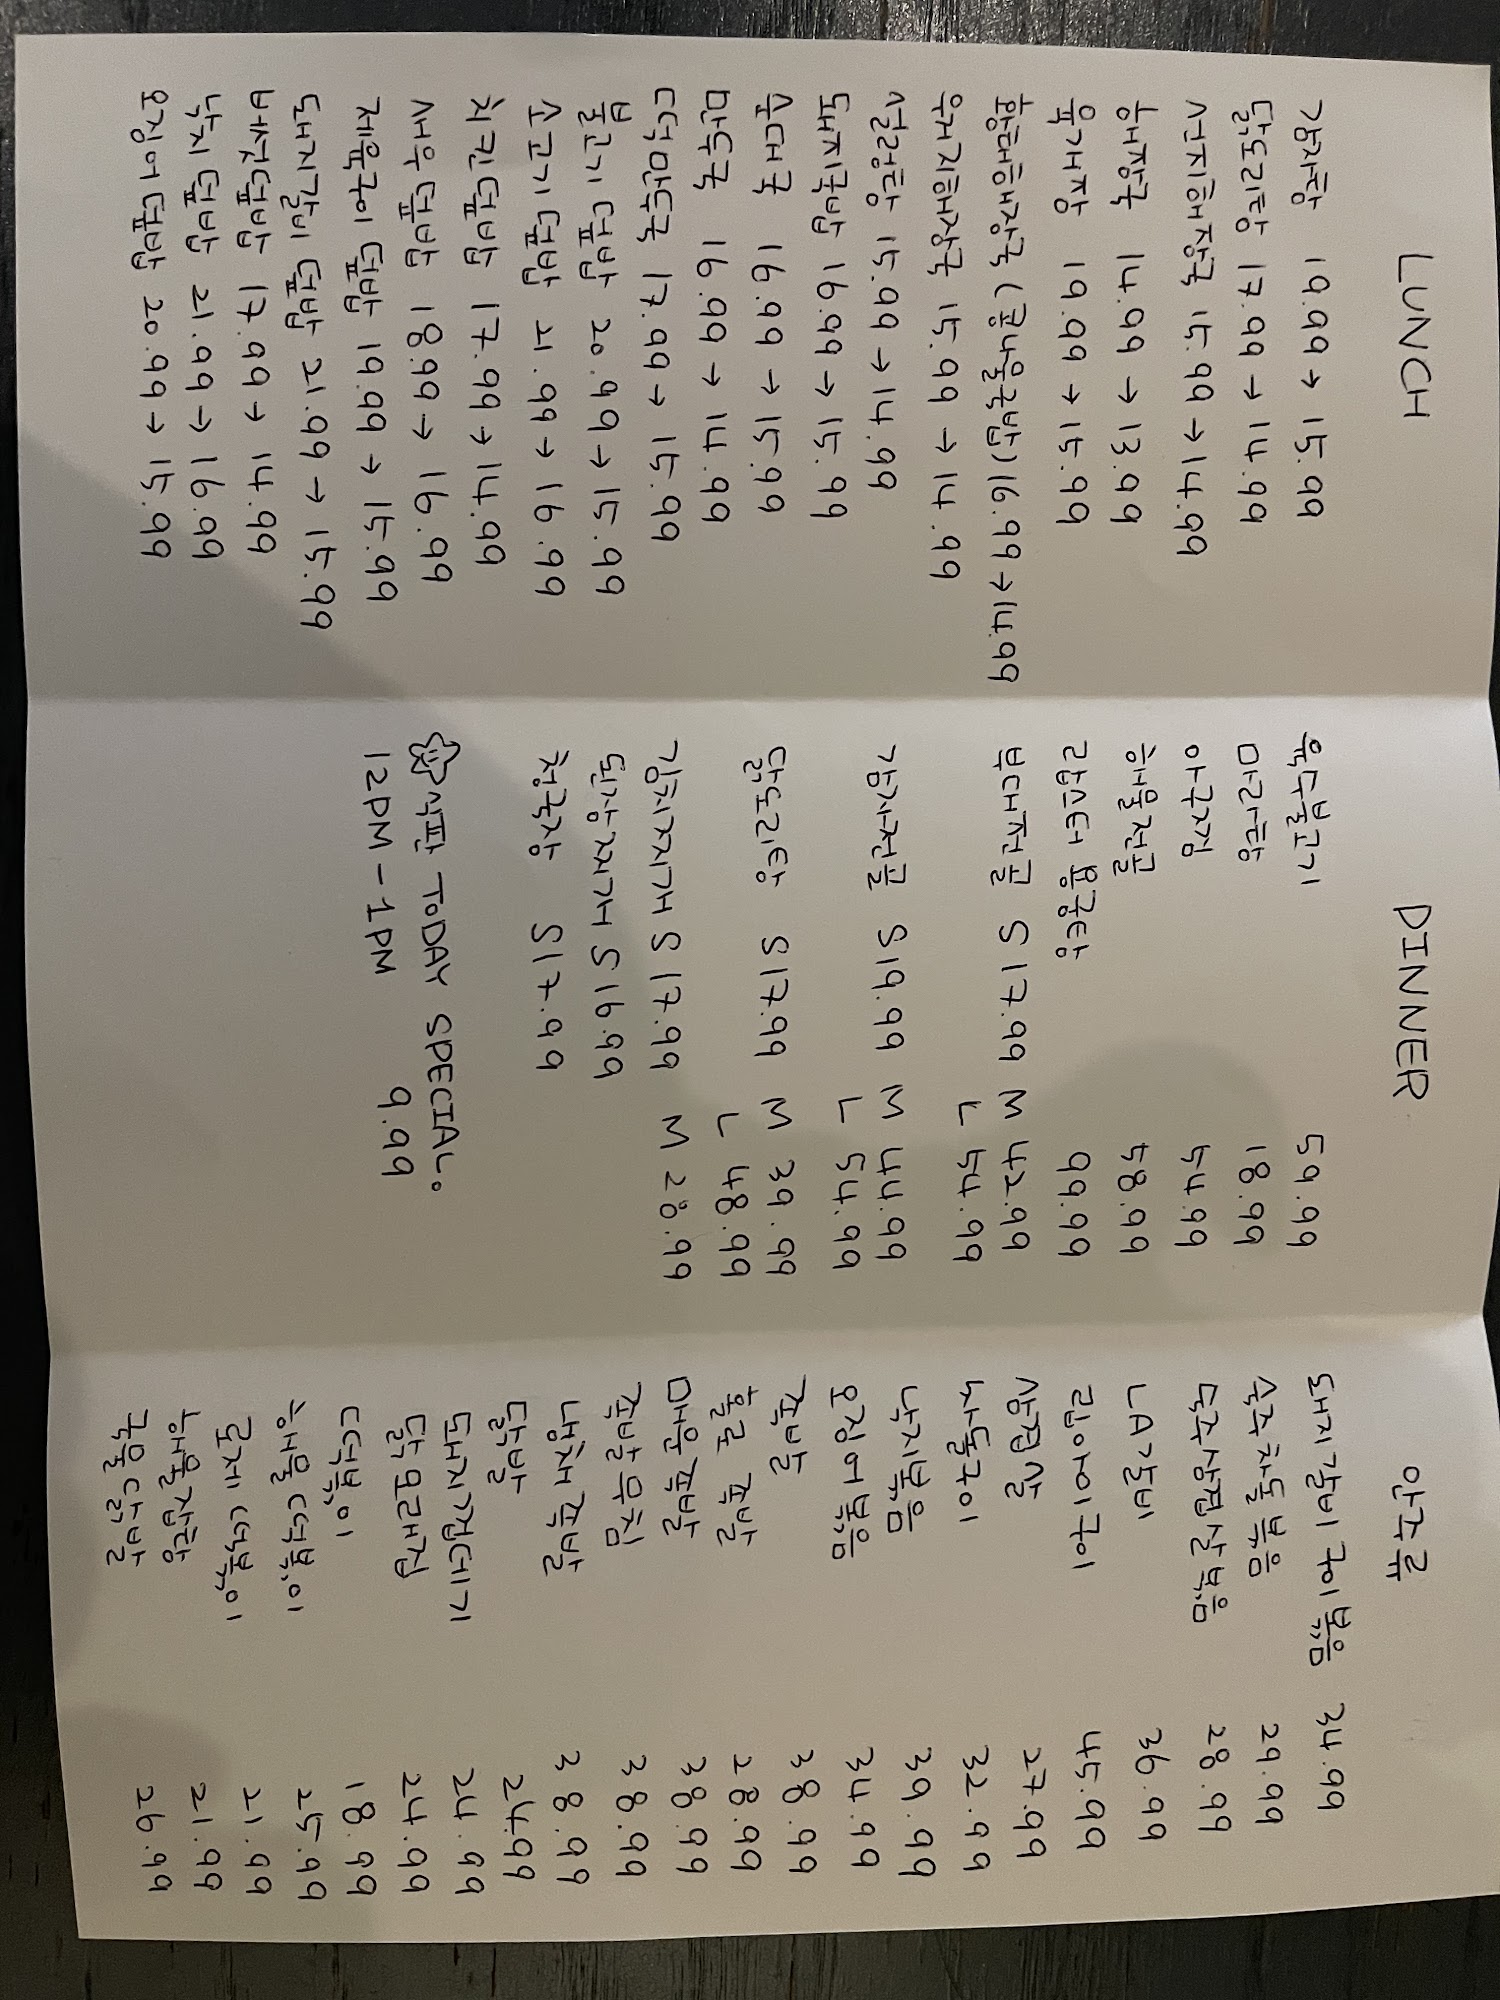 LUNCH
감자탕 19.99 → 15.99
닭도리탕 17.99 → 14.99
선지해장국 15.99 → 14.99
해장국 14.99 → 13.99
육개장 19.99 → 15.99
황태해장국 (콩나물국밥) 16.99 → 14.99
우거지해장국 15.99 → 14.99
설렁탕 15.99 → 14.99
돼지국밥 16.99 → 15.99
순대국 16.99 → 15.99
만두국 16.99 → 14.99
떡만두국 17.99 → 15.99
불고기 덮밥 20.99 → 15.99
소고기 덮밥 21.99 → 16.99
치킨 덮밥 17.99 → 14.99
새우 덮밥 18.99 → 16.99
제육구이 덮밥 19.99 → 15.99
돼지갈비 덮밥 21.99 → 15.99
버섯덮밥 17.99 → 14.99
낙지 덮밥 21.99 → 16.99
오징어 덮밥 20.99 → 15.99
DINNER
옥두불고기 59.99
마라탕 18.99
아구찜 54.99
해물전골 58.99
랍스터 용궁탕 99.99
부대전골 S 17.99 M 42.99
L 54.99
감자전골 S 19.99 M 44.99
L 54.99
닭도리탕 S 17.99 M 39.99
L 48.99
김치찌개 S 17.99 M 28.99
된장찌개 S 16.99
청국장 S 17.99
☆식판 TODAY SPECIAL.
12PM - 1PM 9.99
안주류
돼지갈비 구이볶음 34.99
숙주차돌볶음 29.99
숙주삼겹살볶음 28.99
LA갈비 36.99
립아이구이 45.99
삼겹살 27.99
차돌구이 32.99
낙지볶음 39.99
오징어볶음 34.99
족발 38.99
홀로 족발 28.99
매운 족발 38.99
족발무침 38.99
냉채 족발 38.99
닭발 24.99
돼지껍데기 24.99
닭 모래집 24.99
떡볶이 18.99
해물 떡볶이 25.99
군제 떡볶이 21.99
해물잡탕 21.99
국물닭발 26.99